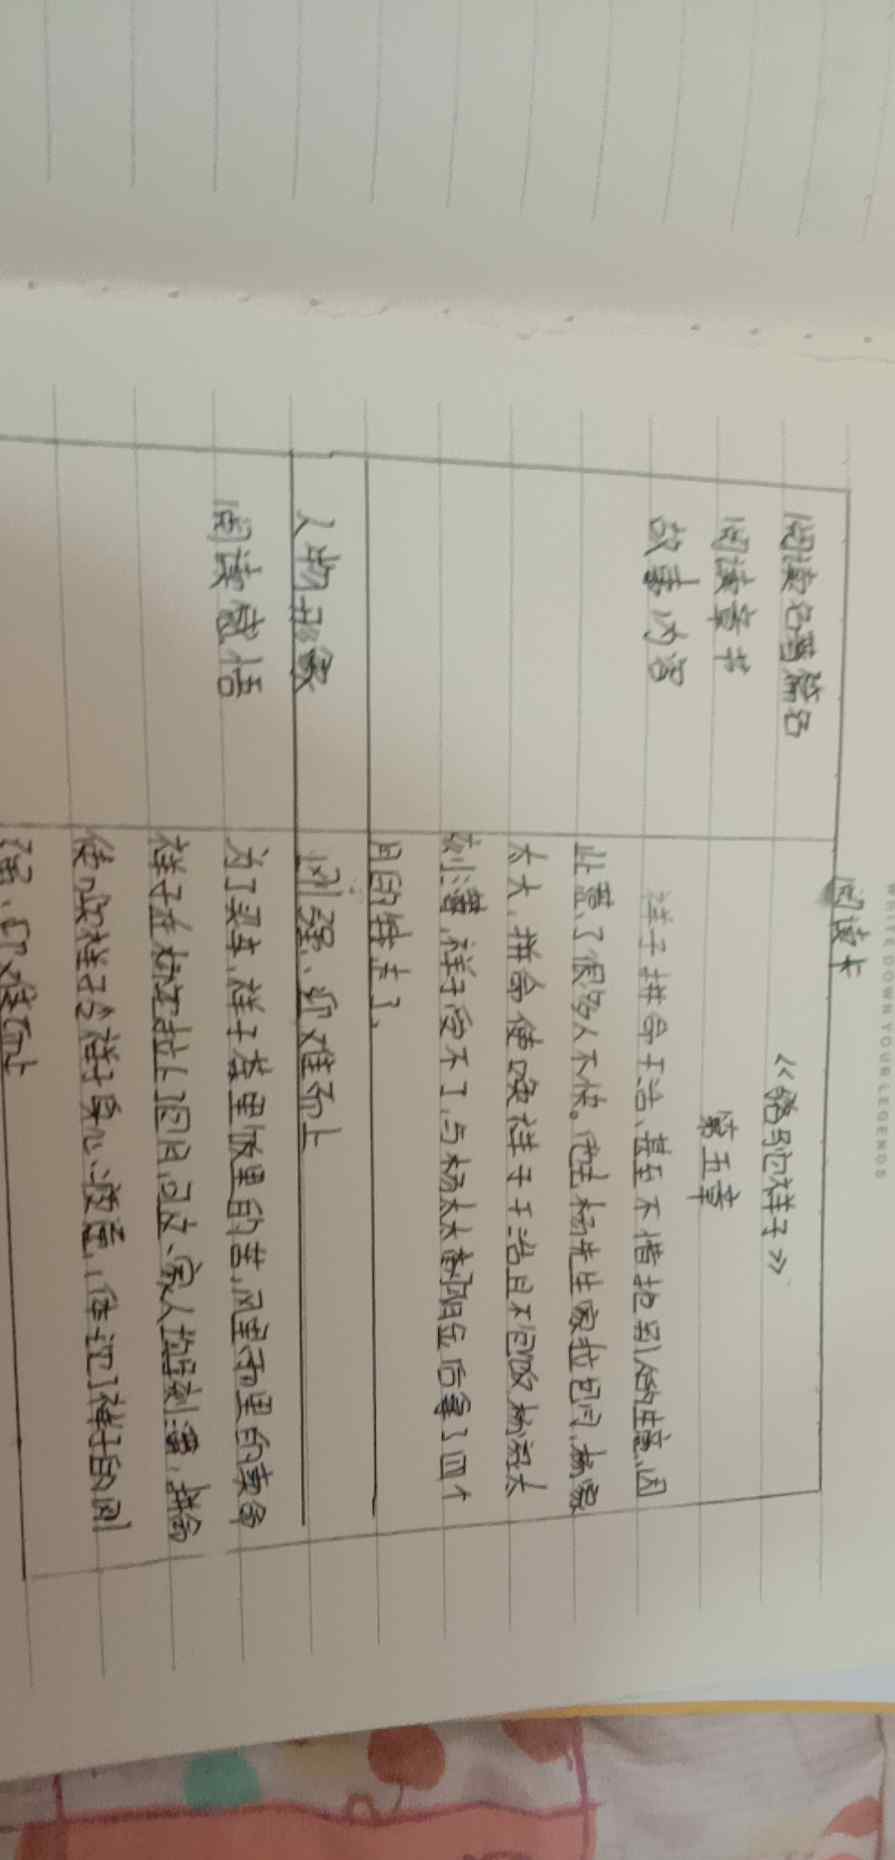 WRITE DOWN YOUR LEGENDS
阅读卡
阅读名著篇名 《骆驼祥子》
阅读章节 第五章
故事内容 祥子拼命干活、甚至不惜抢别人的生意,因
此惹了很多人不快。他去杨先生家拉包月,杨家
太太,拼命使唤祥子干活且不包饭杨太太
刻薄,祥子受不了,与杨太太后拿了四个
月的钱走了,
人物形象 刚强、迎难而上
阅读感悟 为了买车,祥子卷里饭里的苦,风里雨里的卖命
祥子在杨家拉上包月,可女家人的尖刻薄,拼命
使唤祥子令祥子身心疲惫,但祥子的刚
强、迎难而上